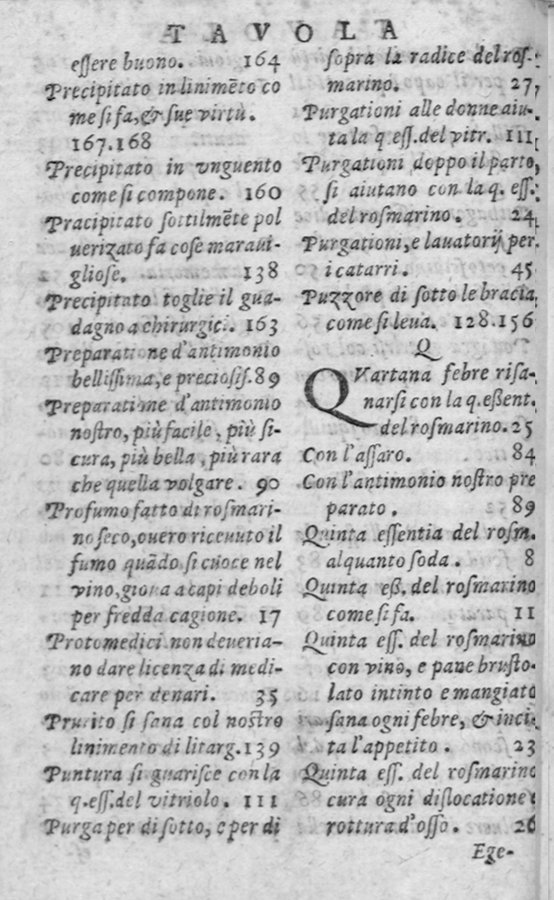 TAVOLA
eſſere buono. 164
Precipitato in linimẽto co
me ſi fa, & ſue virtù.
167.168
Precipitato in vnguento
come ſi compone. 160
Pracipitato ſottilmẽte pol
uerizato fa coſe maraui-
glioſe. 138
Precipitato toglie il gua-
dagno a chirurgici. 163
Preparatione d'antimonio
belliſſima, e precioſiſ. 89
Preparatione d'antimonio
noſtro, più facile, più ſi-
cura, più bella, più rara
che quella volgare. 90
Profumo fatto di roſmari-
no ſeco, ouero riceuuto il
fumo quãdo ſi cuoce nel
vino, gioua a capi deboli
per fredda cagione. 17
Protomedici non deueria-
no dare licenza di medi-
care per denari. 35
Prurito ſi ſana col noſtro
linimento di litarg. 139
Puntura ſi guariſce con la
q.eſſ.del vitriolo. 111
Purga per di ſotto, e per di
ſopra la radice del roſ-
marino. 27
Purgationi alle donne aiu-
ta la q eſſ.del vitr. 111
Purgationi doppo il parto,
ſi aiutano con la q. eſſ.
del roſmarino. 24
Purgationi, e lauatorij per
i catarri. 45
Puzzore di ſotto le bracia
come ſi leua. 128.156
Q
QVartana febre riſa-
narſi con la q.eßent.
del roſmarino. 25
Con l'aſſaro. 84
Con l'antimonio noſtro pre
parato. 89
Quinta eſſentia del roſm.
alquanto ſoda. 8
Quinta eß. del roſmarino
come ſi fa. 11
Quinta eſſ. del roſmarino
con vino, e pane bruſto-
lato intinto e mangiato
ſana ogni febre, & inci-
ta l'appetito. 23
Quinta eſſ. del roſmarino
cura ogni diſlocatione
rottura d'oſſo. 26
Ege-